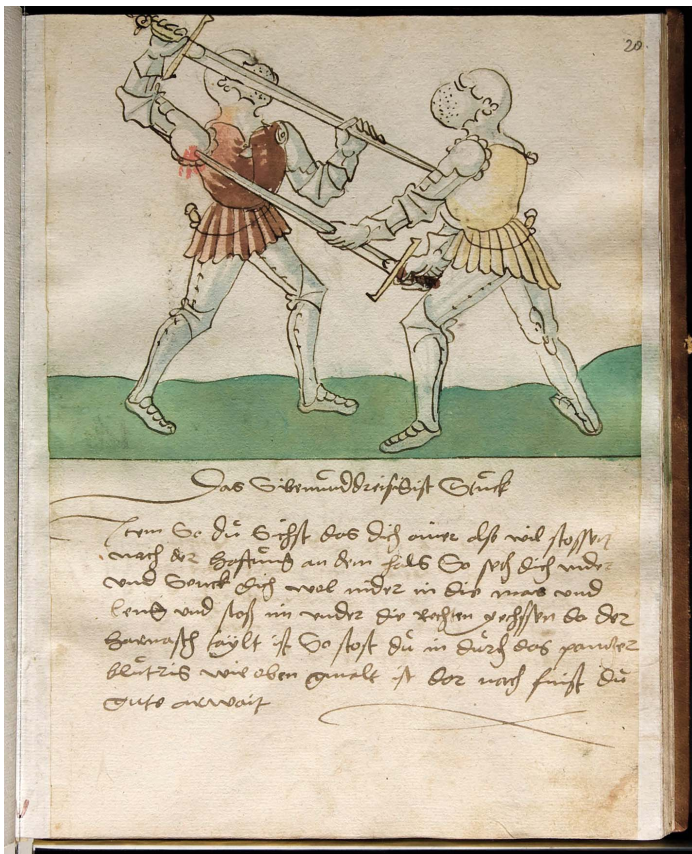 20.
Das Sibenunddreisigist Stuck
Item So du Sichst das dich ainer also wil stossen
nach der Hoffnung an dem hals So sech dich nider
und Senck dich wol nider in die mas und
leng und stoß im under die Rechten yechssen do der
Harnasch taylt ist So stost du in durch das pantzer
blutris wie oben gmalt ist dor nach finst du
gute arwait